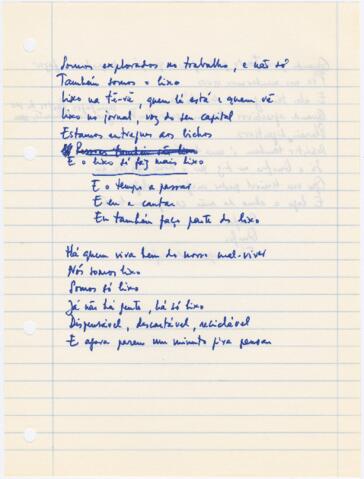 Somos explorados no trabalho, e não só
Também somos o lixo
Lixo na tê-vê, quem lá está e quem vê
Lixo no jornal, voz do seu capital
Estamos entregues aos bichos
E o lixo só faz mais lixo
E o tempo a passar
E eu a cantar
Eu também faço parte do lixo
Há quem viva bem do nosso mal-viver
Nós somos lixo
Somos só lixo
Já não há gente, há só lixo
Dispensável, descartável, reciclável
E agora parem um minuto p'ra pensar